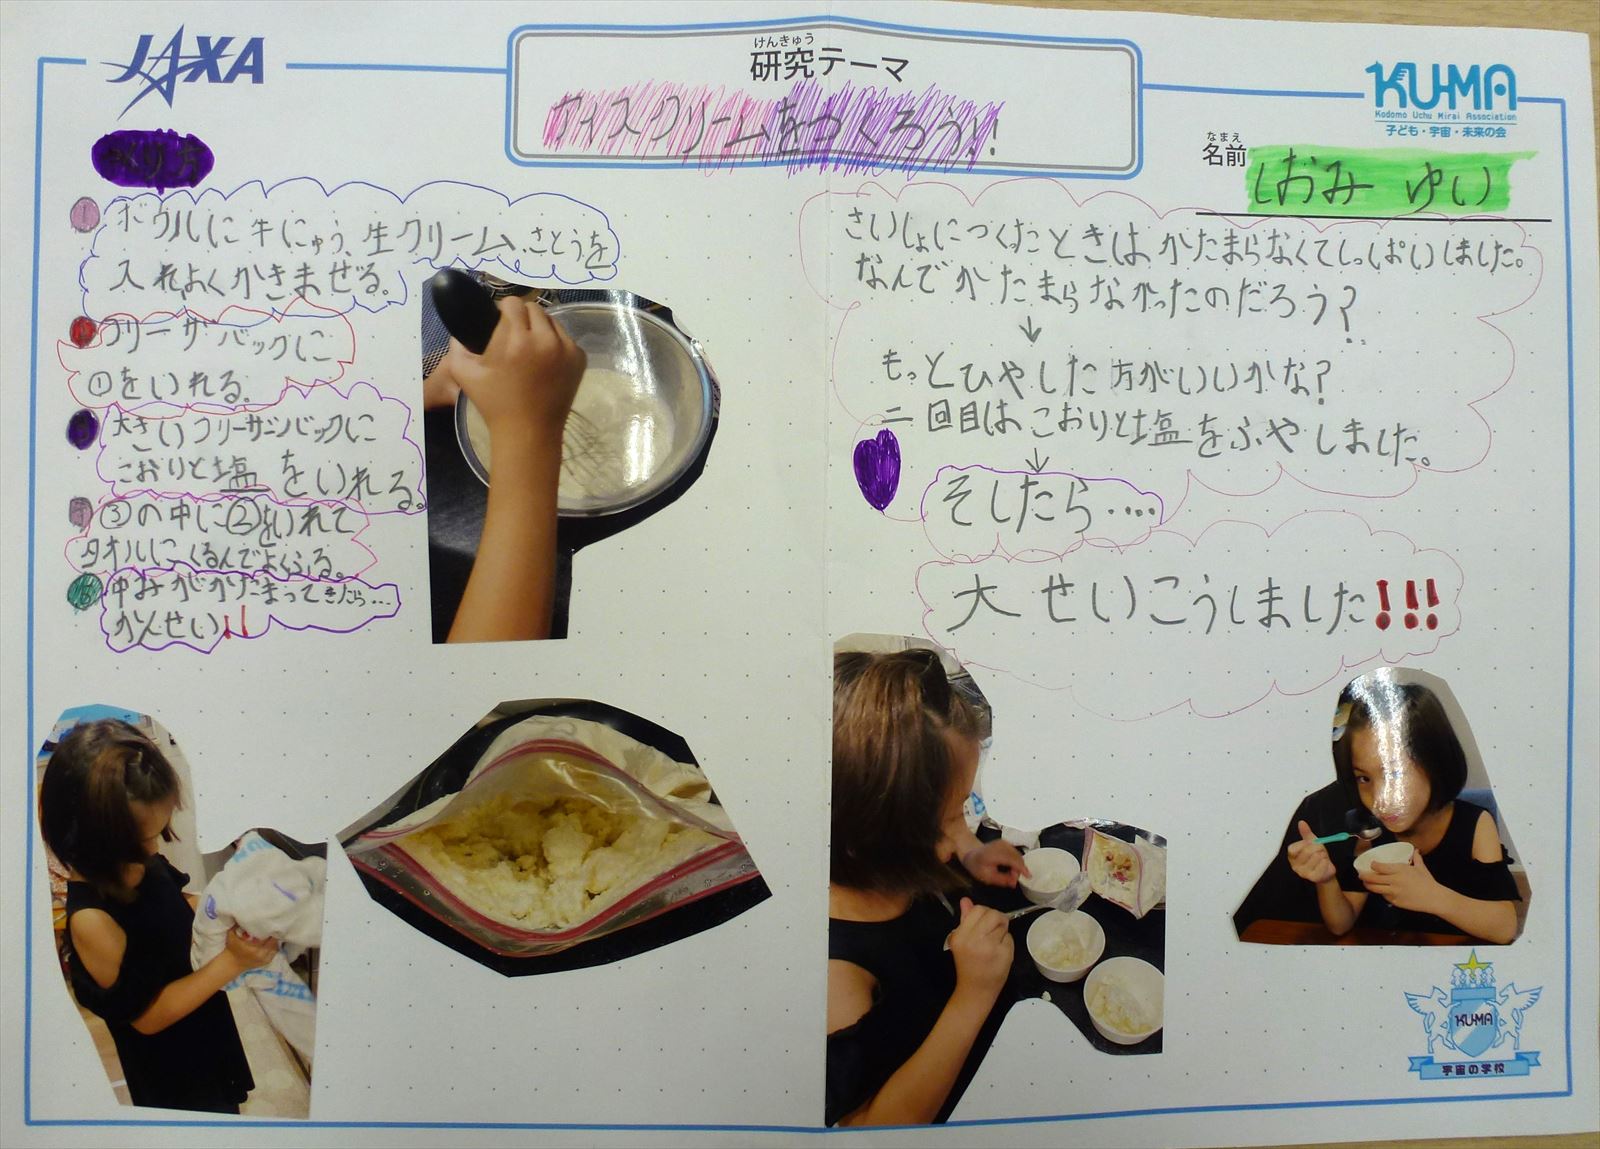 JAXA
けんきゅう
研究テーマ
アイスクリームをつくろう!!
KU-MA
Kodomo Uchu Mirai Association
子ども・宇宙・未来の会
なまえ
名前
しおみ ゆい
つくり方
① ボウルに牛にゅう、生クリーム、さとうを
入れよくかきまぜる。
② フリーザーバックに
①をいれる。
③ 大きいフリーザーバックに
こおりと塩をいれる。
④ ③の中に②をいれて
タオルにくるんでよくふる。
⑤ 中みがかたまってきたら…
かんせい!!
さいしょにつくたときはかたまらなくてしっぱいしました。
なんでかたまらなかったのだろう?
↓
もっとひやした方がいいかな?
二回目はこおりと塩をふやしました。
↓
そしたら‥‥
大せいこうしました!!!
KU-MA
宇宙の学校